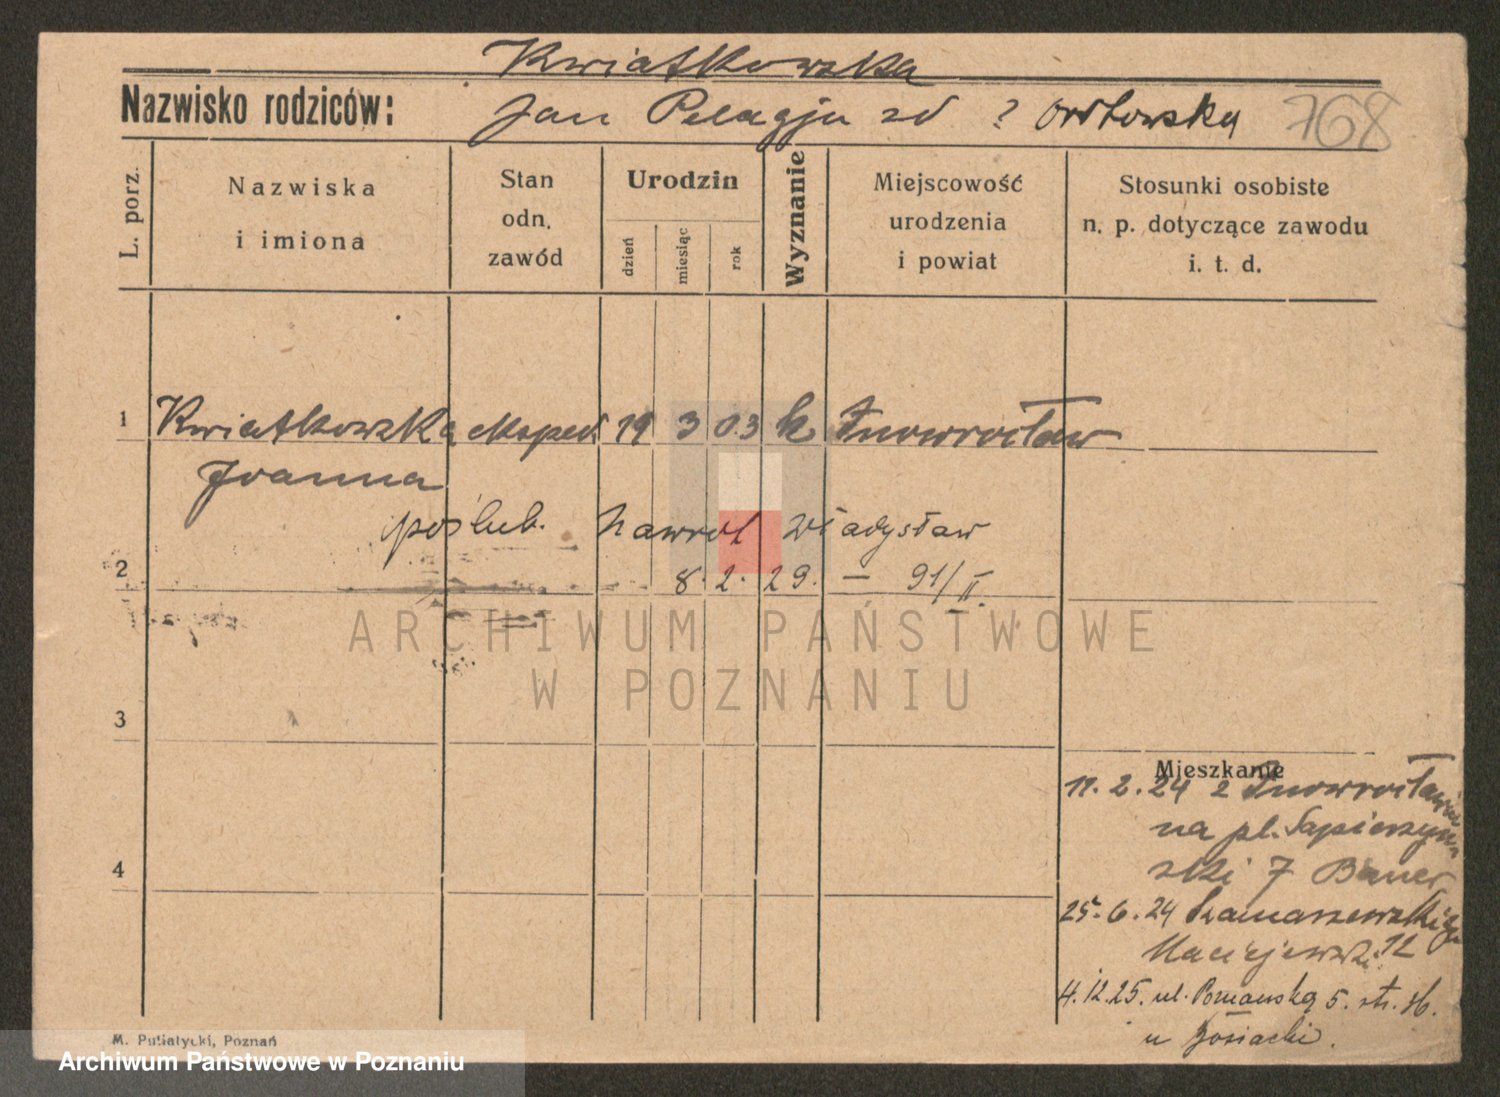 Kwiatkowska
Nazwisko rodziców: Jan Pelagja zd ? Orłowska 768
L. porz.
Nazwiska
i imiona
Stan
odn.
zawód
Urodzin
dzień
miesiąc
rok
Wyznanie
Miejscowość
urodzenia
i powiat
Stosunki osobiste
n. p. dotyczące zawodu
i. t. d.
1 Kwiatkowska eksped. 19 3 03 k Inowrocław
Joanna
poślub. Nawrot Władysław
2 8. 2. 29. — 91/II.
ARCHIWUM PAŃSTWOWE
W POZNANIU
3
Mieszkanie
11. 2. 24 z Inowrocławia
na pl. Sapieżyń
ski 7 Bauer
4
25. 6. 24 Szamarzewskiego
Maciejewski 12
4. 12. 25. ul. Poznańska 5. str. 16.
u
M. Putiatycki, Poznań
Archiwum Państwowe w Poznaniu